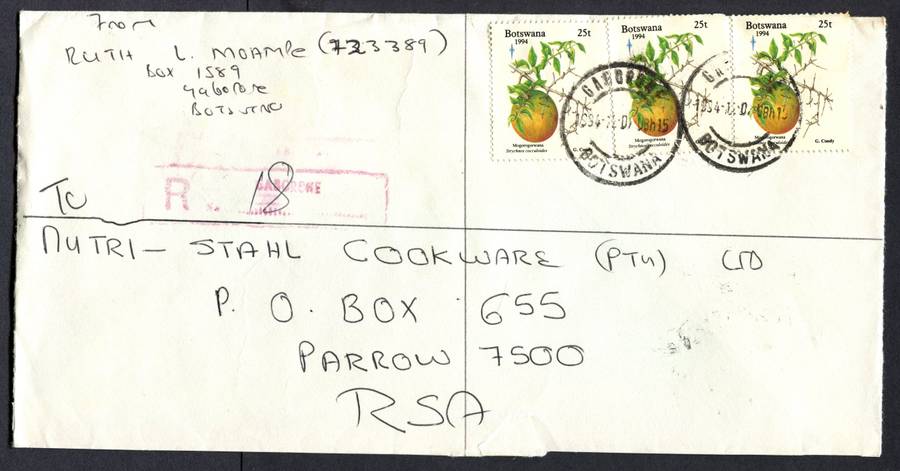 From
RUTH L. MOAMPE (323389)
BOX 1589
Gaborone
BOTSWANA
Botswana 25t
1994
Mogorogorwana
Strychnos cocculoides
G. Condy
Botswana 25t
1994
Mogorogorwana
Strychnos cocculoides
Botswana 25t
1994
Mogorogorwana
Strychnos cocculoides
G. Condy
GABORONE
1994-12-07 08h15
BOTSWANA
1994-12-07 08h15
BOTSWANA
R 18 GABORONE
To
NUTRI- STAHL COOKWARE (PTY) LTD
P. O. BOX 655
PARROW 7500
RSA